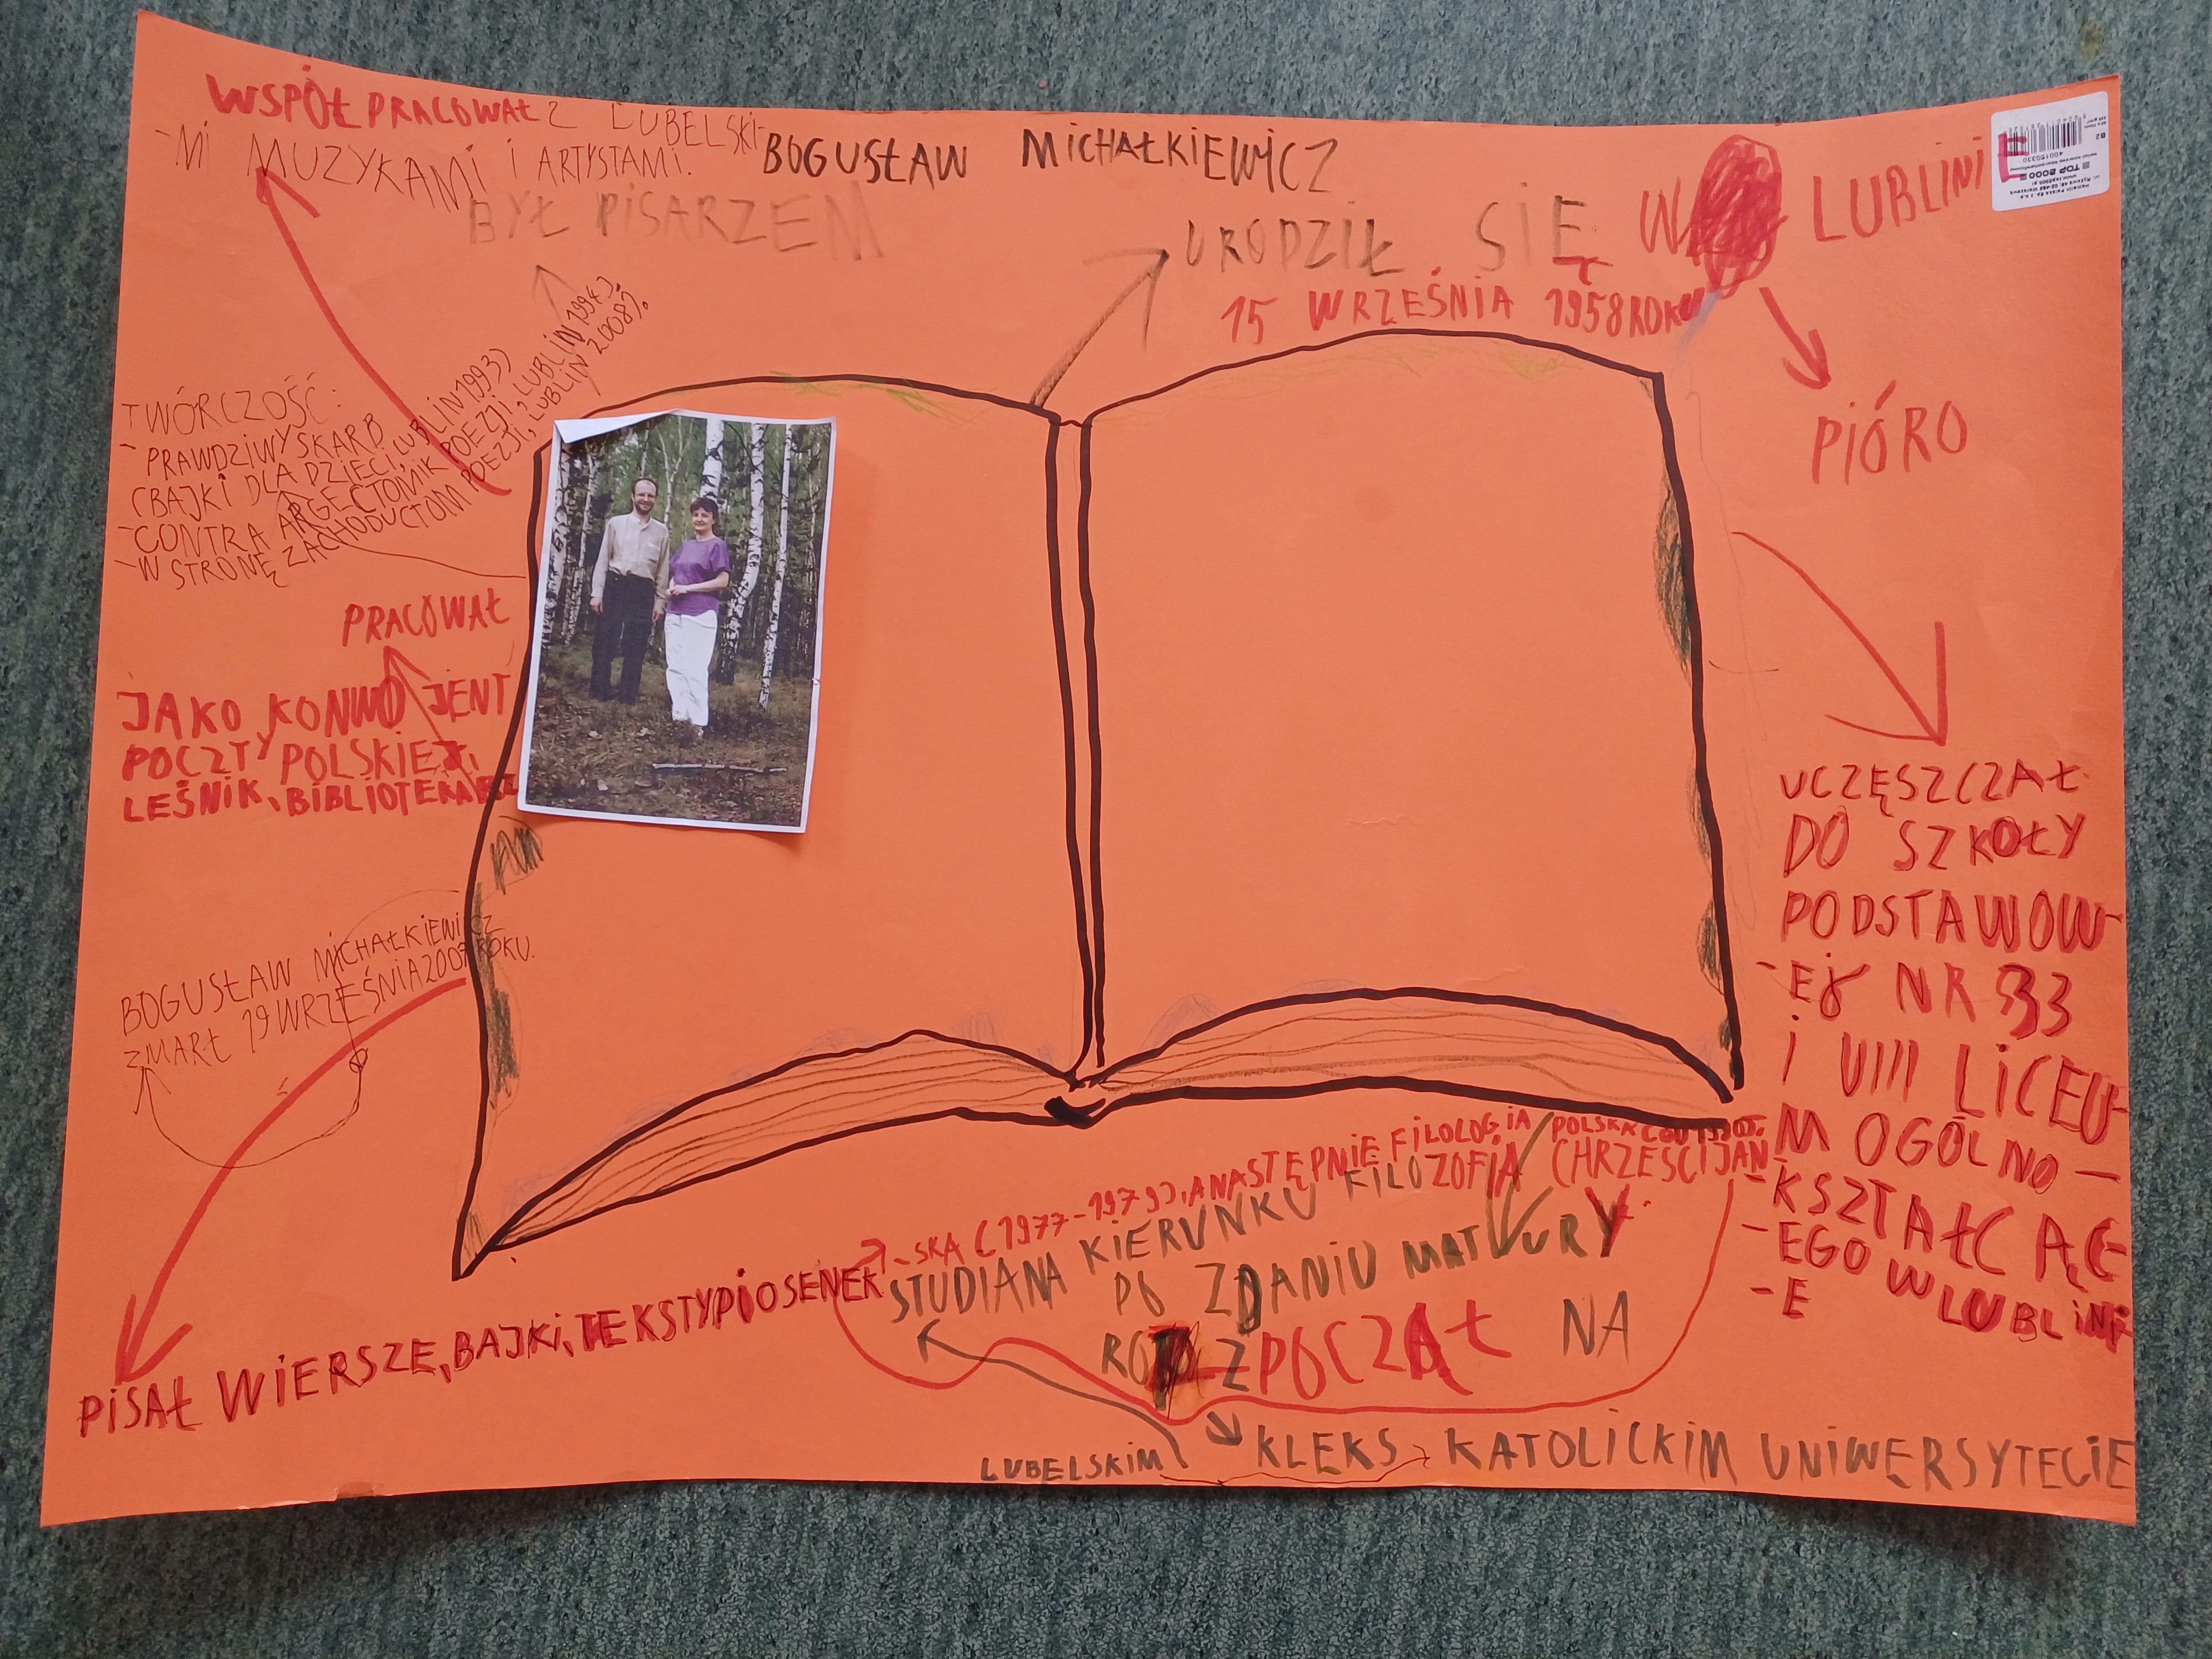 WSPÓŁPRACOWAŁ Z LUBELSKI-
-MI MUZYKAMI I ARTYSTAMI.
BOGUSŁAW MICHAŁKIEWICZ
BYŁ PISARZEM
URODZIŁ SIĘ W LUBLINIE
15 WRZEŚNIA 1958 ROKU
PIÓRO
TWÓRCZOŚĆ:
- PRAWDZIWY SKARB
(BAJKI DLA DZIECI, LUBLIN 1993)
- CONTRA ARGE(TOMIK POEZJI, LUBLIN 1994).
- W STRONĘ ZACHODU(TOM POEZJI, LUBLIN 2008).
PRACOWAŁ
JAKO KONWOJENT
POCZTY POLSKIEJ,
LEŚNIK, BIBLIOTEKARZ
BOGUSŁAW MICHAŁKIEWICZ
ZMARŁ 19 WRZEŚNIA 2007 ROKU.
UCZĘSZCZAŁ
DO SZKOŁY
PODSTAWOW-
-EJ NR 33
I VIII LICEU-
-M OGÓLNO-
-KSZTAŁCĄC-
-EGO W LUBLINI-
-E
PISAŁ WIERSZE, BAJKI, TEKSTY PIOSENEK
-SKA (1977-1979), A NASTĘPNIE FILOLOGIA POLSKA
STUDIA NA KIERUNKU FILOZOFIA CHRZEŚCIJAN-
PO ZDANIU MATURY
ROZPOCZĄŁ NA
LUBELSKIM
KLEKS
KATOLICKIM UNIWERSYTECIE
TOP 2000
400150330
B2